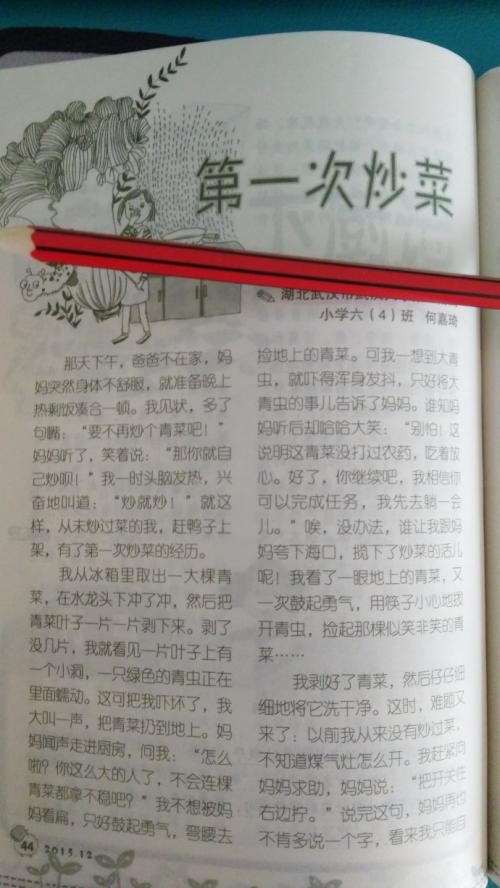 第一次炒菜
湖北武汉市武汉
小学六（4）班 何嘉琦
那天下午，爸爸不在家，妈
妈突然身体不舒服，就准备晚上
热剩饭凑合一顿。我见状，多了
句嘴：“要不再炒个青菜吧！”
妈妈听了，笑着说：“那你就自
己炒呗！”我一时头脑发热，兴
奋地叫道：“炒就炒！”就这
样，从未炒过菜的我，赶鸭子上
架，有了第一次炒菜的经历。
我从冰箱里取出一大棵青
菜，在水龙头下冲了冲，然后把
青菜叶子一片一片剥下来。剥了
没几片，我就看见一片叶子上有
一个小洞，一只绿色的青虫正在
里面蠕动。这可把我吓坏了，我
大叫一声，把青菜扔到地上。妈
妈闻声走进厨房，问我：“怎么
啦？你这么大的人了，不会连棵
青菜都拿不稳吧？”我不想被妈
妈看扁，只好鼓起勇气，弯腰去
捡地上的青菜。可我一想到大青
虫，就吓得浑身发抖，只好将大
青虫的事儿告诉了妈妈。谁知妈
妈听后却哈哈大笑：“别怕！这
说明这青菜没打过农药，吃着放
心。好了，你继续吧，我相信你
可以完成任务，我先去躺一会
儿。”唉，没办法，谁让我跟妈
妈夸下海口，揽下了炒菜的活儿
呢！我看了一眼地上的青菜，又
一次鼓起勇气，用筷子小心地拨
开青虫，捡起那棵似笑非笑的青
菜……
我剥好了青菜，然后仔仔细
细地将它洗干净。这时，难题又
来了：以前我从来没有炒过菜，
不知道煤气灶怎么开。我赶紧向
妈妈求助，妈妈说：“把开关往
右边拧。”说完这句，妈妈再也
不肯多说一个字，看来我只能自
44 2015.12